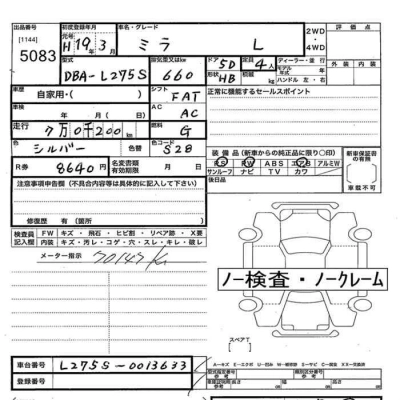 出品番号
[1144]
5083
初度登録年月
元号
H 19年 3月
車名・グレード
ミラ L
2WD
・
4WD
評価点
型式
DBA-L275S
排気量又はkw
660
ドア 5D
形状 HB
定員 4人
積載 kg
ディーラー・並行
モデル年式
ハンドル 左・右
外装 内装
車歴
自家用・( )
シフト
FAT
正常に機能するセールスポイント
車検
年 月( 日)
AC
AC
走行
7万0千200km
燃料
G
色
シルバー
色コード
S28
装備品(新車からの純正品に限り〇印)
PS PW ABS エアB アルミW
サンルーフ ナビ TV カワ
新車保証書の有無
有
記載不可
R券
8640円
名変書類有効期限
月 日
後日品
注意事項申告欄(不具合内容等は具体的に記入して下さい)
修復歴 有 (箇所 )
検査員記入欄
FW キズ・飛石・ヒビ割・リペア跡・X要
内装 キズ・汚レ・コゲ・穴・スレ・キレ・破レ
メーター指示 70147K
ノー検査・ノークレーム
スペアT
車台番号
L275S-0013633
登録番号
A-キズ E-エクボ U-凹み
型式指定番号
参考
類別区分番号
参考
長さ
幅
高さ